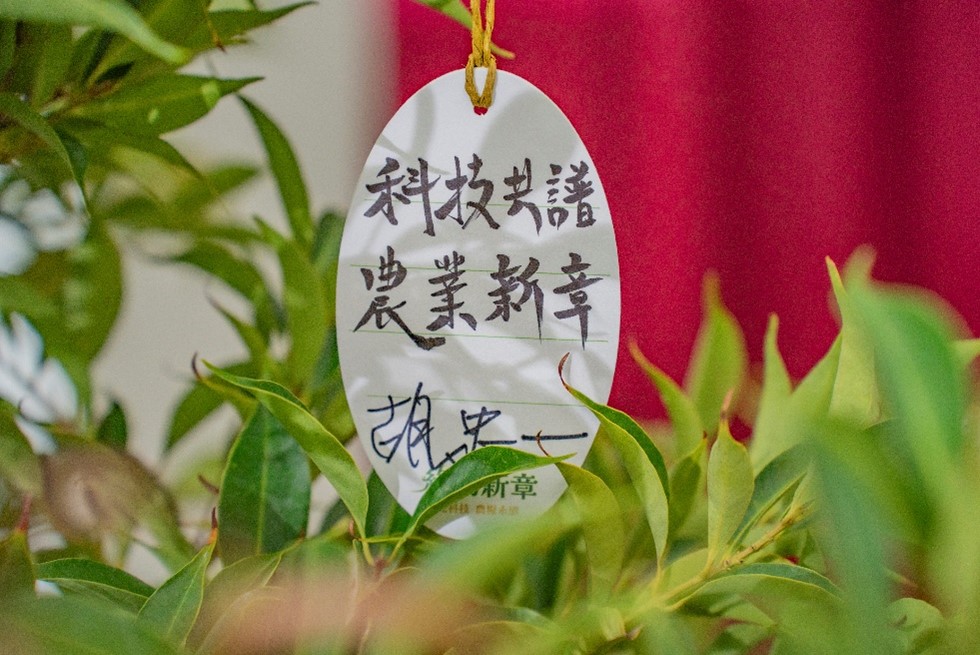 科技共譜
農業新章
胡忠一
新章
科技 農